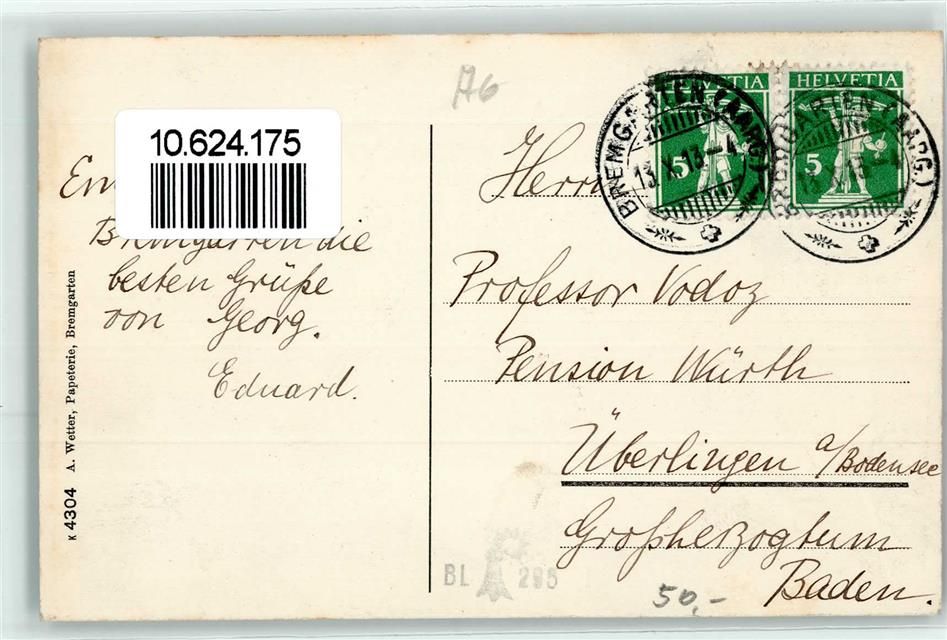 A6
10.624.175
Bremgarten die
besten Grüße
von Georg.
Eduard.
K 4304 A. Wetter, Papeterie, Bremgarten
HELVETIA
5
HELVETIA
5
BREMGARTEN (AARG.)
13.X.13–4
BREMGARTEN (AARG.)
13.X.13–4
Herrn
Professor Vodoz
Pension Würth
Überlingen a/Bodensee
Großherzogtum
Baden.
BL 295
50,-